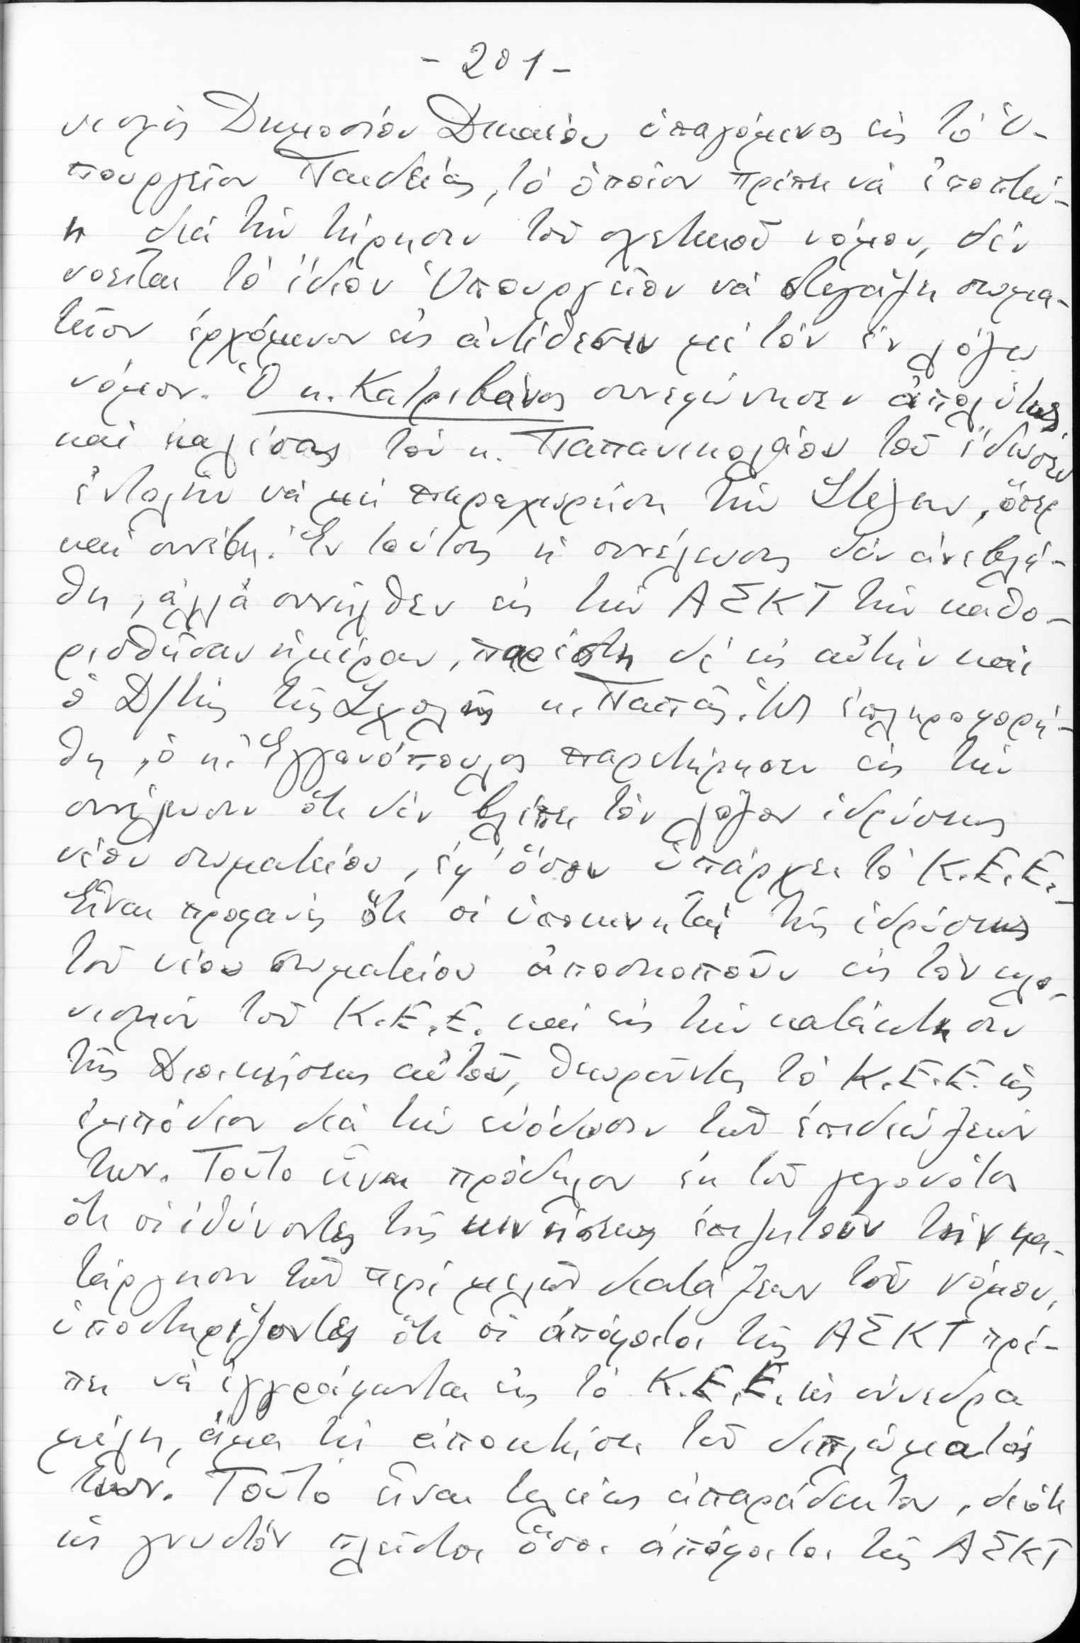 - 201 -
νισμὸς Δημοσίου Δικαίου ὑπαγόμενος εἰς τὸ Ὑ-
πουργεῖον Παιδείας, τὸ ὁποῖον πρέπει νὰ ἐποπτεύ-
η διὰ τὴν τήρησιν τοῦ σχετικοῦ νόμου, δὲν
νοεῖται τὸ ἴδιον Ὑπουργεῖον νὰ στεγάζη σωμα-
τεῖον ἐρχόμενον εἰς ἀντίθεσιν μὲ τὸν ἐν λόγω
νόμον. Ὁ κ. Κατριβάνος συνεφώνησεν ἀπολύτως
καὶ καλέσας τὸν κ. Παπανικολάου τοῦ ἔδωσεν
ἐντολὴν νὰ μὴ παραχωρήση τὴν Στέγην, ὅπερ
καὶ συνέβη. Ἐν τούτοις ἡ συνέλευσις δὲν ἀνεβλή-
θη, ἀλλὰ συνῆλθεν εἰς τὴν ΑΣΚΤ τὴν καθο-
ρισθεῖσαν ἡμέραν, παρέστη δὲ εἰς αὐτὴν καὶ
ὁ Δ/τὴς τῆς Σχολῆς κ. Παπᾶς. Ὡς ἐπληροφορή-
θην, ὁ κ. Ἐγγονόπουλος παρετήρησεν εἰς τὴν
συνέλευσιν ὅτι δὲν βλέπει τὸν λόγον ἱδρύσεως
νέου σωματείου, ἐφ' ὅσον ὑπάρχει τὸ Κ.Ε.Ε.-
Εἶναι προφανὲς ὅτι οἱ ὑποκινηταὶ τῆς ἱδρύσεως
τοῦ νέου σωματείου ἀποσκοποῦν εἰς τὸν κλο-
νισμὸν τοῦ Κ.Ε.Ε. καὶ εἰς τὴν κατάκτησιν
τῆς Διοικήσεως αὐτοῦ, θεωροῦντες τὸ Κ.Ε.Ε. ὡς
ἐμπόδιον διὰ τὴν εὐόδωσιν τῶν ἐπιδιώξεών
των. Τοῦτο εἶναι πρόδηλον ἐκ τοῦ γεγονότος
ὅτι οἱ ἰθύνοντες τῆς κινήσεως ἐπιζητοῦν τὴν κα-
τάργησιν τῶν περὶ μελῶν διατάξεων τοῦ νόμου,
ὑποστηρίζοντες ὅτι οἱ ἀπόφοιτοι τῆς ΑΣΚΤ πρέ-
πει νὰ ἐγγράφωνται εἰς τὸ Κ.Ε.Ε. ὡς σύνεδρα
μέλη, ἅμα τῆ ἀποκτήσει τοῦ διπλώματός
των. Τοῦτο εἶναι τελείως ἀπαράδεκτον, διότι
ὡς γνωστὸν πλεῖστοι ὅσοι ἀπόφοιτοι τῆς ΑΣΚΤ